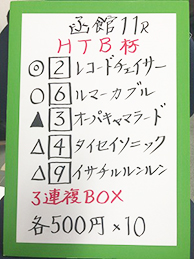 函館11R
HTB杯
◎2レコードチェイサー
○6ルマーカブル
▲3オーパキャマラード
△4タイセイソニック
△9イサチルルンルン
3連複BOX
各500円×10